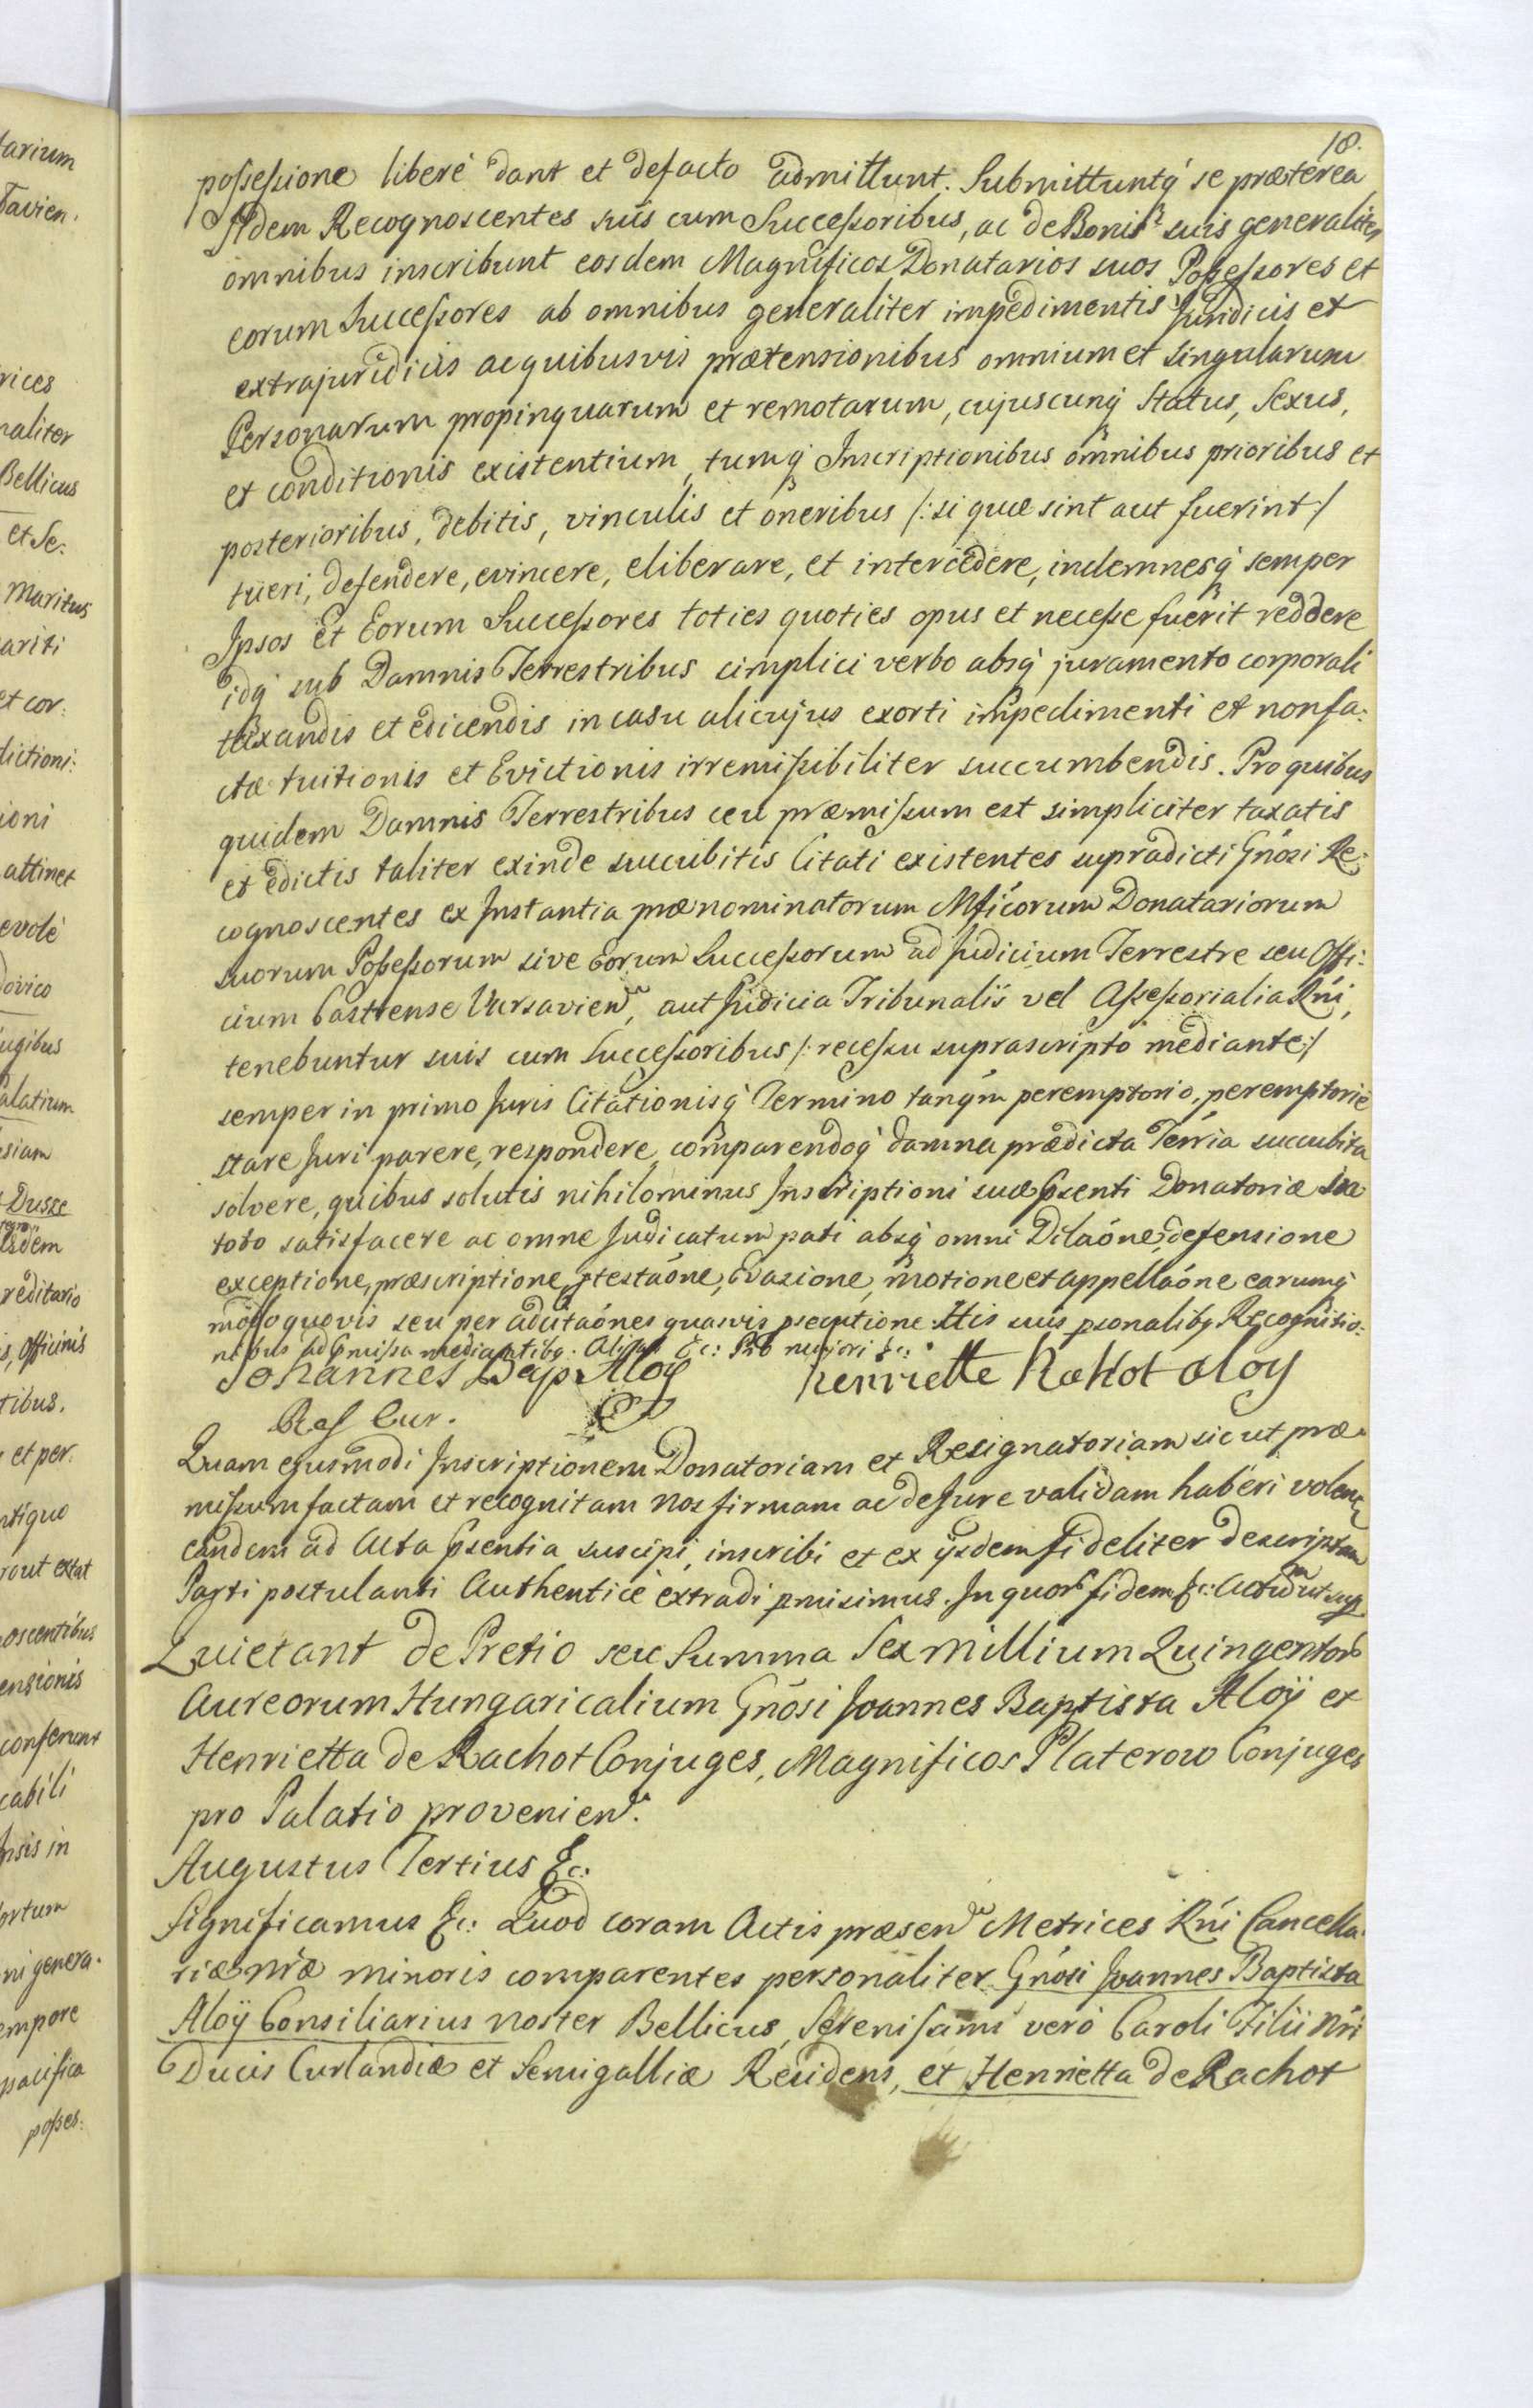 18.
possessione liberè dant et defacto admittunt. Submittuntq́ se præterea
Iidem Recognoscentes suis cum Successoribus, ac de Bonis suis generaliter
omnibus inscribunt eosdem Magnificos Donatarios suos Possessores et
eorum Successores ab omnibus generaliter impedimentis Juridicis et
extrajuridicis ac quibusvis prætensionibus omnium et singularum
Personarum propinquarum et remotarum, cujuscunq́ Status, Sexus,
et conditionis existentium, tumq́ Inscriptionibus omnibus prioribus et
posterioribus, debitis, vinculis et oneribus /: si quæ sint aut fuerint :/
tueri, defendere, evincere, eliberare, et intercedere, indemnesq́ semper
Ipsos et Eorum Successores toties quoties opus et necesse fuerit reddere
idq́ sub Damnis Terrestribus cimplici verbo absq́ juramento corporali
taxandis et edicendis in casu alicujus exorti impedimenti et nonfa:
ctæ tuitionis et Evictionis irremissibiliter succumbendis. Pro quibus
quidem Damnis Terrestribus ceu præmissum est simpliciter taxatis
et edictis taliter exinde succubitis Citati existentes supradicti Gnósi Re:
cognoscentes ex Instantia prænominatorum Mficórum Donatariorum
suorum Possessorum sive Eorum Successorum ad Judicium Terrestre seu Offi:
cium Castrense Varsavien, aut Judicia Tribunalis vel Assessorialia Rni,
tenebuntur suis cum Successoribus /: recessu suprascripto mediante :/
semper in primo Juris Citationisq́ Termino tanq́m peremptorio, peremptorie
stare Juri parere, respondere, comparendoq́ damna prædicta Terria succubita
solvere, quibus solutis nihilominus Inscriptioni suæ Psenti Donatoriæ in
toto satisfacere ac omne Judicatum pati absq́ omni Dilaóne, defensione
exceptione, præscriptione, ptestaóne, Evasione, motione et appellaóne earumq́
modo quovis seu per adcitaónes quasvis psecutione Ittis suis psonalibq Recognitio:
nibus ad Pmissa mediantibq.
Johannes Bap: Aloy Henriette Rachot Aloy
Res Cur.
Quam ejusmodi Inscriptionem Donatoriam et Resignatoriam sicut præ:
missum factam et recognitam nos firmam ac de Jure validam haberi volentes
eandem ad Acta Psentia suscipi, inscribi et ex ijsdem fideliter descriptam
Parti postulanti Authenticè extradi pmisimus. In quor fidem &c: Actum ut sup.
Quietant de Pretio seu Summa Sex millium Quingentor
Aureorum Hungaricalium Gnósi Joannes Baptista Aloÿ et
Henrietta de Rachot Conjuges, Magnificos Platerow Conjuges
pro Palatio provenien.
Augustus Tertius &c:
Significamus &c: Quod coram Actis præsen Metrices Rni Cancella:
riæ nræ minoris comparentes personaliter Gnósi Joannes Baptista
Aloÿ Consiliarius noster Bellicus, Serenissimi verò Caroli Filii nri
Ducis Curlandiæ et Semigalliæ Residens, et Henrietta de Rachot
tarium
savien.
rices
raliter
Bellicus
et Se:
Maritus
ariti
et cor:
dictioni:
ioni
attinet
evolè
dovico
ugibus
Palatium
siam
Dusze
Iisdem
reditario
s, Officinis
tibus.
et per:
ntiquo
rout extat
oscentibus
ensionis
conferunt
cabili
psis in
ortum
ni genera:
empore
pacifica
posses: